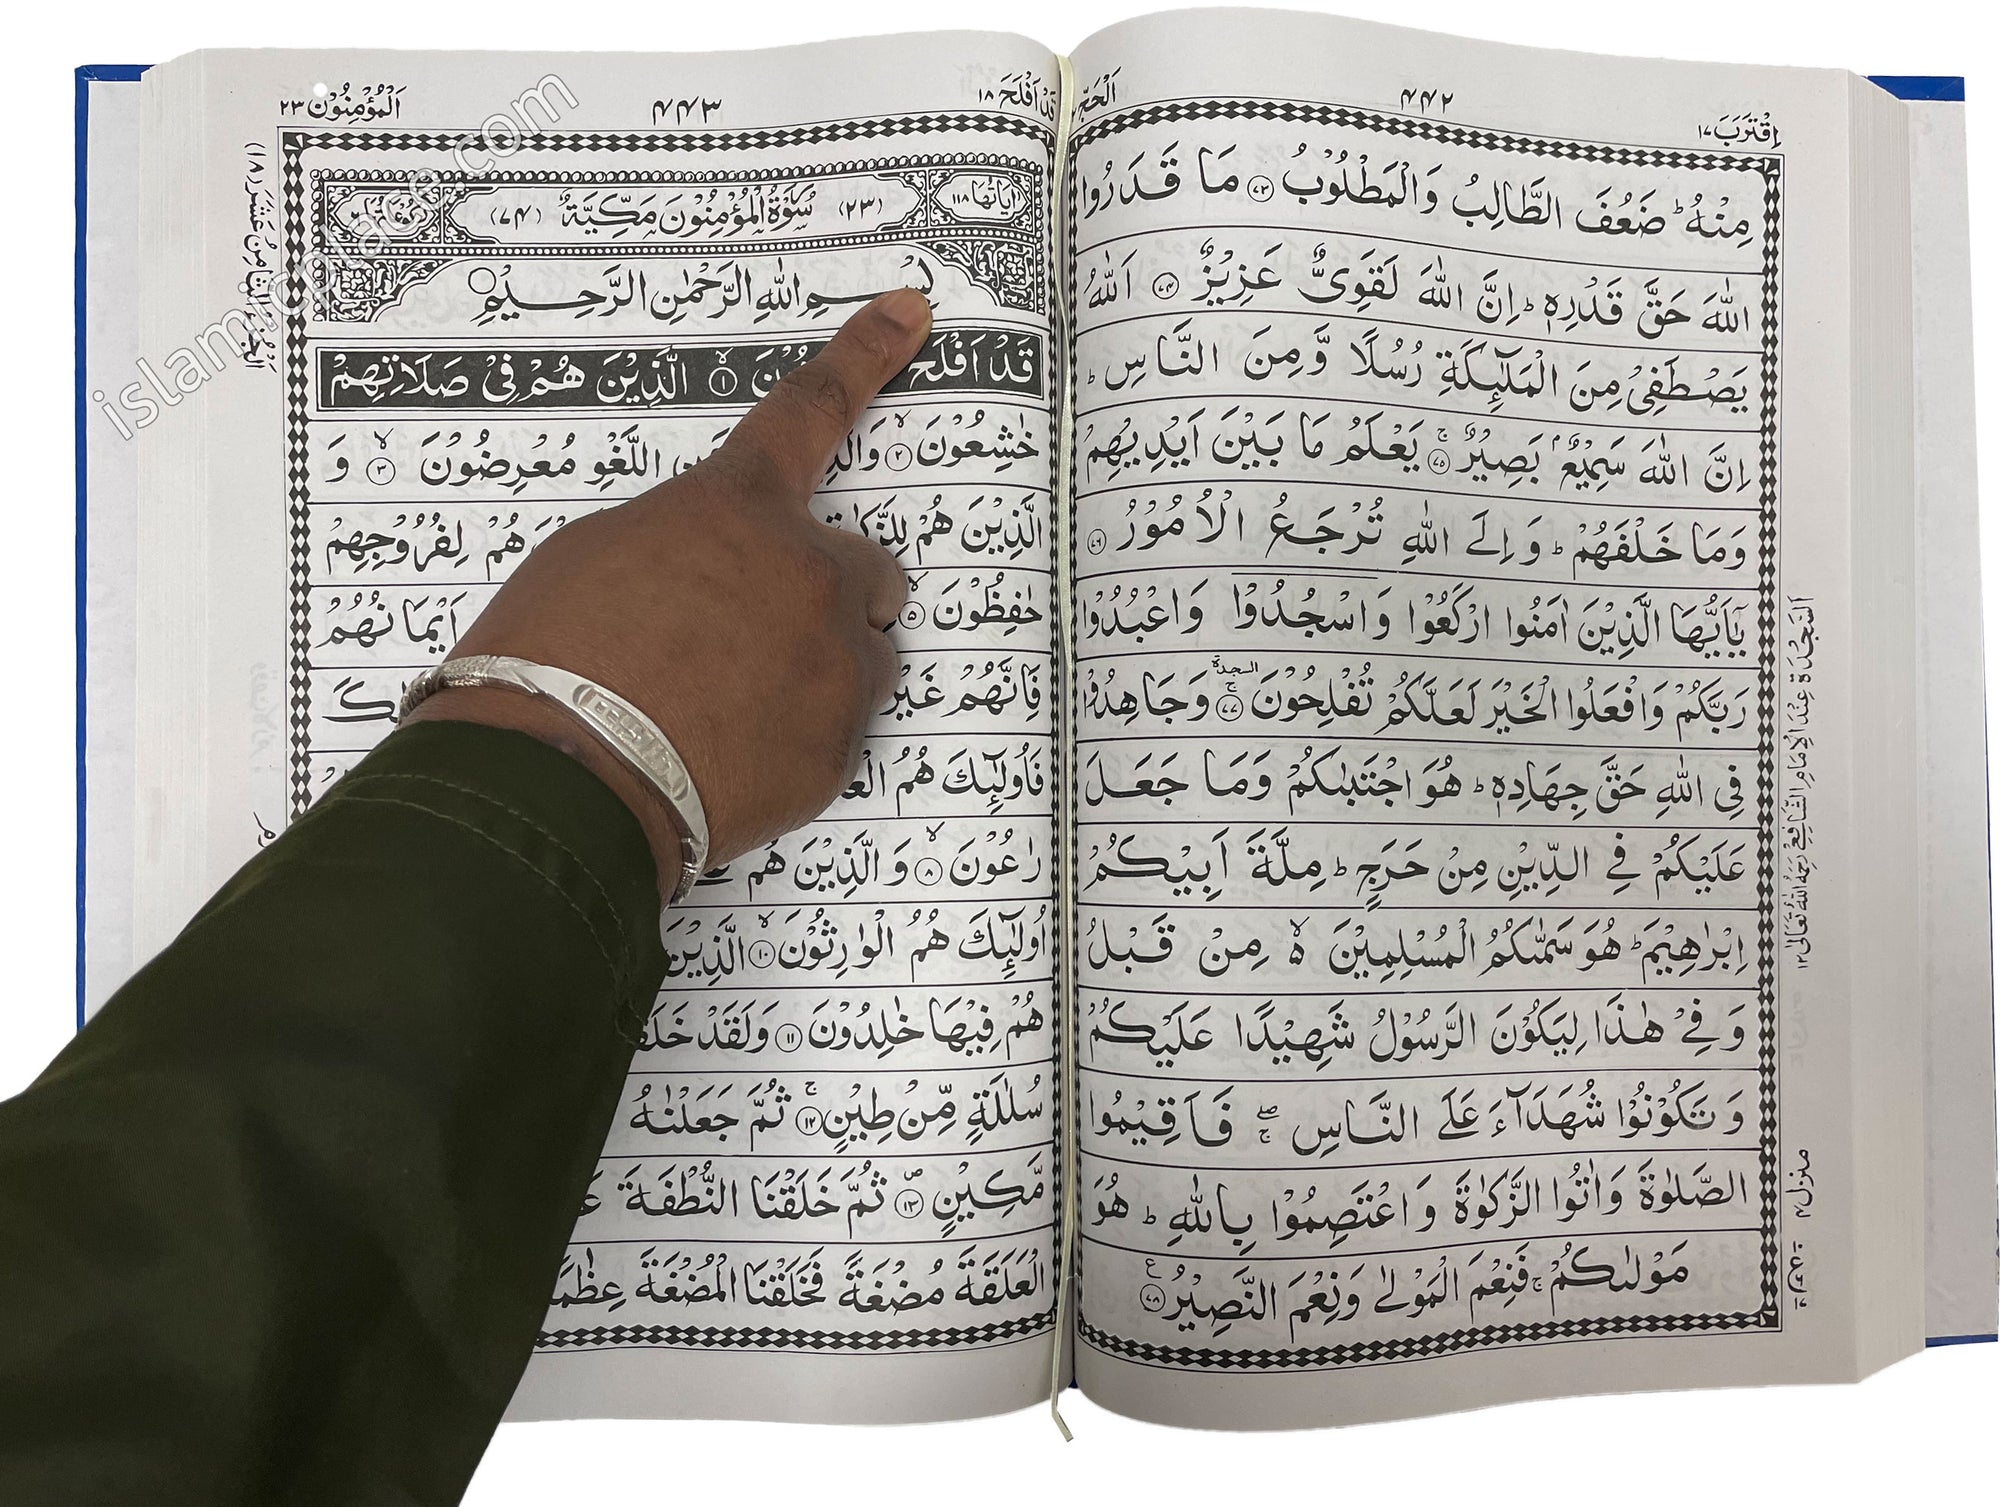 اِقْتَرَبَ ١٧
۴۴۲
اَلْحَجّ
مِنْهُ ؕ ضَعُفَ الطَّالِبُ وَالْمَطْلُوْبُ ﴿۷۳﴾ مَا قَدَرُوا
اللّٰهَ حَقَّ قَدْرِهٖ ؕ اِنَّ اللّٰهَ لَقَوِىٌّ عَزِيْزٌ ﴿۷۴﴾ اَللّٰهُ
يَصْطَفِىْ مِنَ الْمَلٰٓئِكَةِ رُسُلًا وَّمِنَ النَّاسِ ؕ
اِنَّ اللّٰهَ سَمِيْعٌۢ بَصِيْرٌ ۚ﴿۷۵﴾ يَعْلَمُ مَا بَيْنَ اَيْدِيْهِمْ
وَمَا خَلْفَهُمْ ؕ وَاِلَى اللّٰهِ تُرْجَعُ الْاُمُوْرُ ﴿۷۶﴾
يٰۤاَيُّهَا الَّذِيْنَ اٰمَنُوا ارْكَعُوْا وَاسْجُدُوْا وَاعْبُدُوْا
رَبَّكُمْ وَافْعَلُوا الْخَيْرَ لَعَلَّكُمْ تُفْلِحُوْنَ ۚ السجدة ﴿۷۷﴾ وَجَاهِدُوْا
فِى اللّٰهِ حَقَّ جِهَادِهٖ ؕ هُوَ اجْتَبٰىكُمْ وَمَا جَعَلَ
عَلَيْكُمْ فِى الدِّيْنِ مِنْ حَرَجٍ ؕ مِلَّةَ اَبِيْكُمْ
اِبْرٰهِيْمَ ؕ هُوَ سَمّٰىكُمُ الْمُسْلِمِيْنَ ۙ مِنْ قَبْلُ
وَفِىْ هٰذَا لِيَكُوْنَ الرَّسُوْلُ شَهِيْدًا عَلَيْكُمْ
وَتَكُوْنُوْا شُهَدَآءَ عَلَى النَّاسِ ۖۚ فَاَقِيْمُوا
الصَّلٰوةَ وَاٰتُوا الزَّكٰوةَ وَاعْتَصِمُوْا بِاللّٰهِ ؕ هُوَ
مَوْلٰىكُمْ ۚ فَنِعْمَ الْمَوْلٰى وَنِعْمَ النَّصِيْرُ ﴿۷۸﴾ ع
اَلسَّجْدَةُ عِنْدَ الْاِمَامِ الشَّافِعِىِّ رَحِمَهُ اللّٰهُ تَعَالٰى ١٢
منزل ۴
قَدْ اَفْلَحَ ١٨
۴۴۳
اَلْمُؤْمِنُوْن ٢٣
اٰيَاتُهَا ١١٨
(٢٣) سُوْرَةُ الْمُؤْمِنُوْنَ مَكِّيَّةٌ (٧۴)
بِسْمِ اللّٰهِ الرَّحْمٰنِ الرَّحِيْمِ
قَدْ اَفْلَحَ الَّذِيْنَ هُمْ فِىْ صَلَاتِهِمْ
خٰشِعُوْنَ ۙ﴿۲﴾ اللَّغْوِ مُعْرِضُوْنَ ۙ﴿۳﴾ وَ
الَّذِيْنَ هُمْ هُمْ لِفُرُوْجِهِمْ
حٰفِظُوْنَ ۙ﴿۵﴾ اَيْمَانُهُمْ
فَاِنَّهُمْ غَيْرُ
فَاُولٰٓئِكَ هُمُ
رٰعُوْنَ ۙ﴿۸﴾ وَالَّذِيْنَ هُمْ
اُولٰٓئِكَ هُمُ الْوٰرِثُوْنَ ۙ﴿۱۰﴾ الَّذِيْنَ
هُمْ فِيْهَا خٰلِدُوْنَ ﴿۱۱﴾ وَلَقَدْ
سُلٰلَةٍ مِّنْ طِيْنٍ ۚ﴿۱۲﴾ ثُمَّ جَعَلْنٰهُ
مَّكِيْنٍ ﴿۱۳﴾ ثُمَّ خَلَقْنَا النُّطْفَةَ
الْعَلَقَةَ مُضْغَةً فَخَلَقْنَا الْمُضْغَةَ
اَلْجُزْءُ الثَّامِنُ عَشَرَ (١٨)
islamicplace.com